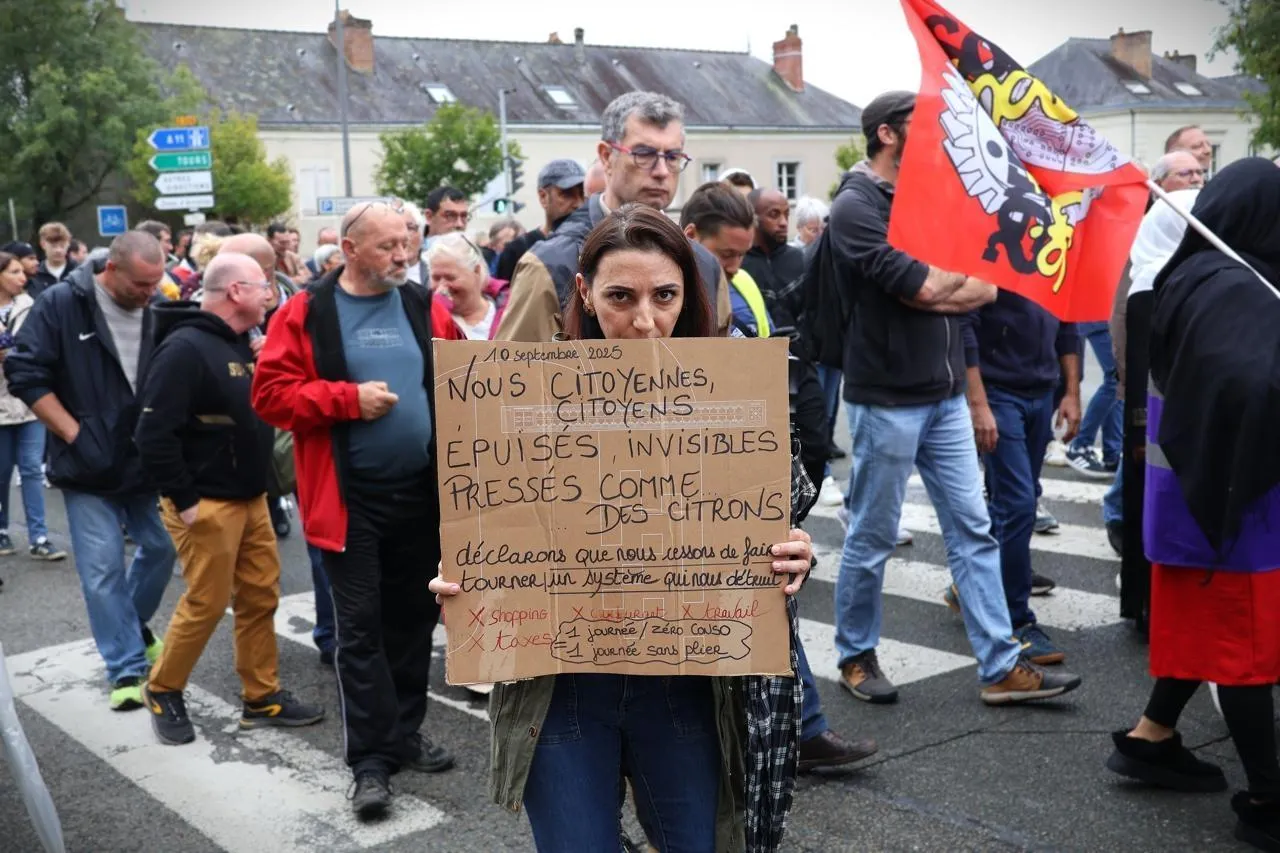 A 11
TOURS
AUTRES
DIRECTIONS
10 septembre 2025
NOUS CITOYENNES,
CITOYENS
ÉPUISÉS, INVISIBLES
PRESSÉS COMME
DES CITRONS
déclarons que nous cessons de faire
tourner un système qui nous détruit
X shopping X carburant X travail
X taxes 1 journée / zéro CONSO
= 1 journée sans plier